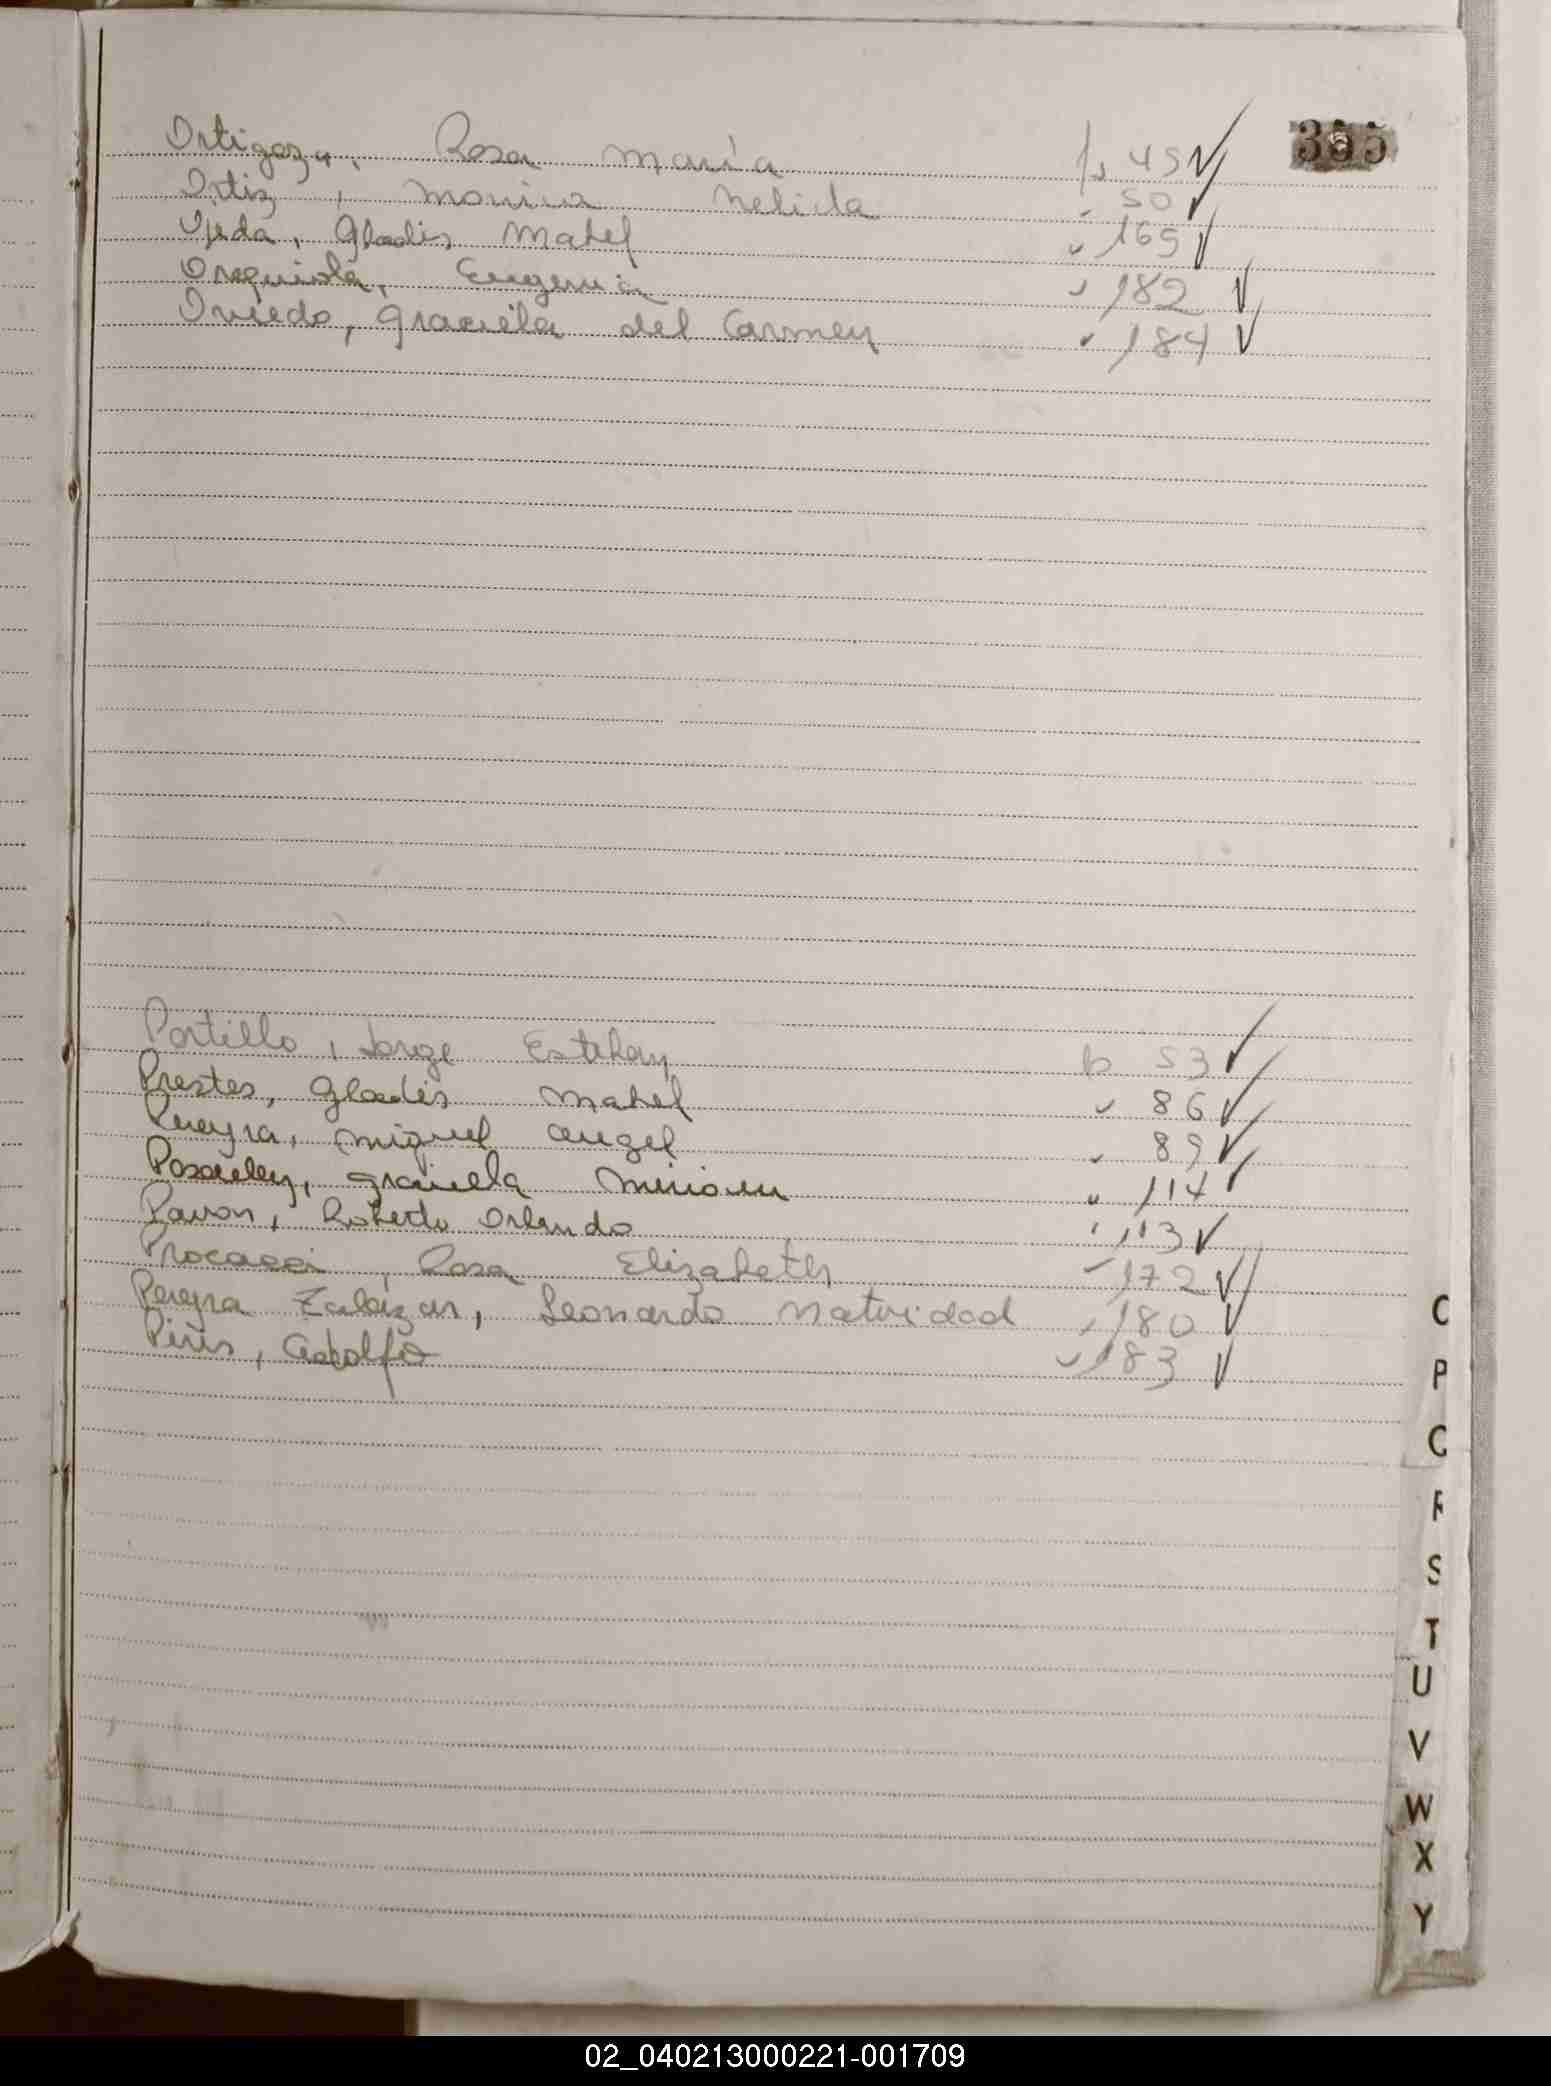 Ortigoza, Rosa María fs 45 ✓
Ortiz, Monica Nelida " 50 ✓
Ojeda, Gladis Mabel " 169 ✓
Orequiola, Eugenia " 182 ✓
Oviedo, Graciela del Carmen " 184 ✓
Portillo, Jorge Esteban fs 53 ✓
Prestes, Gladis Mabel " 86 ✓
Pereyra, Miguel Angel " 89 ✓
Graciela Miriam " 114 ✓
Pavon, Roberto Orlando " 113 ✓
Procacci, Rosa Elizabeth " 172 ✓
Pereyra Zalazar, Leonardo Natividad " 180 ✓
Piris, Adolfo " 183 ✓
P
S
T
U
V
W
X
Y
02_040213000221-001709